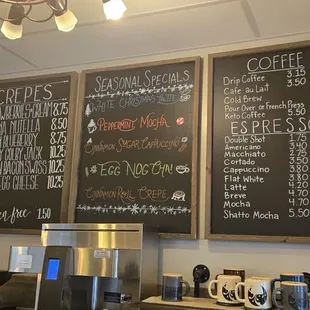 CREPES
BERRIES & CREAM 8.75
NUTELLA 8.50
BLUEBERRY 8.75
COLBY JACK 10.25
EGG CHEESE 10.25
free 1.50
SEASONAL SPECIALS
WHITE CHRISTMAS LATTE
PEPPERMINT MOCHA
CINNAMON SUGAR CAPPUCCINO
EGG NOG CHAI
CINNAMON ROLL CREPE
COFFEE
Drip Coffee 3.15
Cafe au Lait 3.50
Cold Brew
Pour Over or French Press
Keto Coffee 5.50
ESPRESSO
Double Shot
Americano
Macchiato
Cortado
Cappuccino
Flat White
Latte
Breve 4.70
Mocha 4.70
Shatto Mocha 5.50